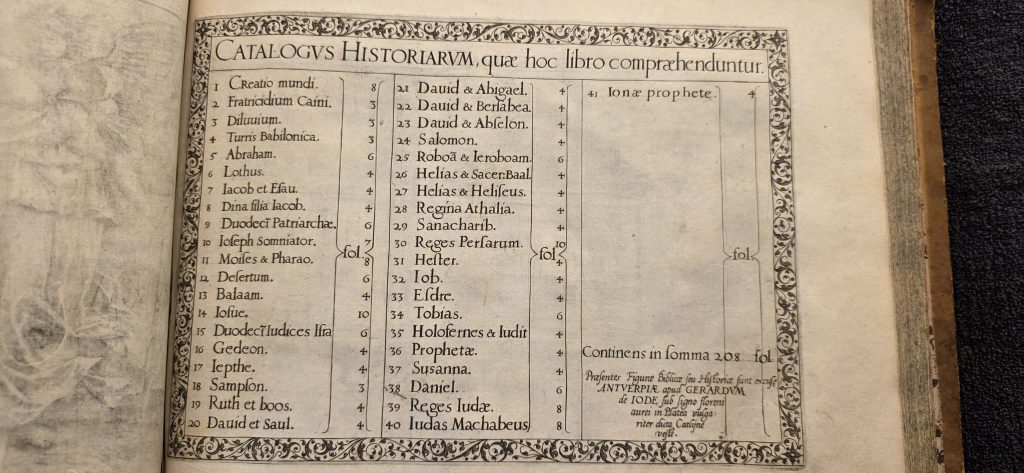 CATALOGVS HISTORIARVM, quæ hoc libro compræhenduntur.
1 Creatio mundi. 8
2 Fratricidium Caini. 3
3 Diluuium. 3
4 Turris Babilonica. 3
5 Abraham. 6
6 Lothus. 4
7 Iacob et Eſau. 4
8 Dina filia Iacob. 4
9 Duodecī Patriarchæ. 6
10 Ioſeph Somniator. 7
11 Moiſes & Pharao. 8
12 Deſertum. 6
13 Balaam. 4
14 Ioſue. 10
15 Duodecī Iudices Iſra 6
16 Gedeon. 4
17 Iepthe. 4
18 Sampſon. 3
19 Ruth et boos. 4
20 Dauid et Saul. 4
fol
21 Dauid & Abigael. 4
22 Dauid & Berſabea. 4
23 Dauid & Abſelon. 4
24 Salomon. 4
25 Roboā & Ieroboam. 6
26 Helias & Sacer: Baal. 4
27 Helias & Heliſeus. 4
28 Regina Athalia. 4
29 Sanacharib. 4
30 Reges Perſarum. 10
31 Heſter. 4
32 Iob. 4
33 Eſdre. 4
34 Tobias. 6
35 Holofernes & Iudit 4
36 Prophetæ. 4
37 Suſanna. 4
38 Daniel. 6
39 Reges Iudæ. 8
40 Iudas Machabeus 8
fol
41 Ionæ prophete. 4
fol
Continens in ſomma 208 fol
Præſentes Figuræ Biblicæ ſeu Hiſtoriæ ſunt excuſe
ANTVERPIÆ apud GERARDVM
de IODE, ſub ſigno floreni
aurei in Platea vulga
riter dicta Catlijne
veſte.